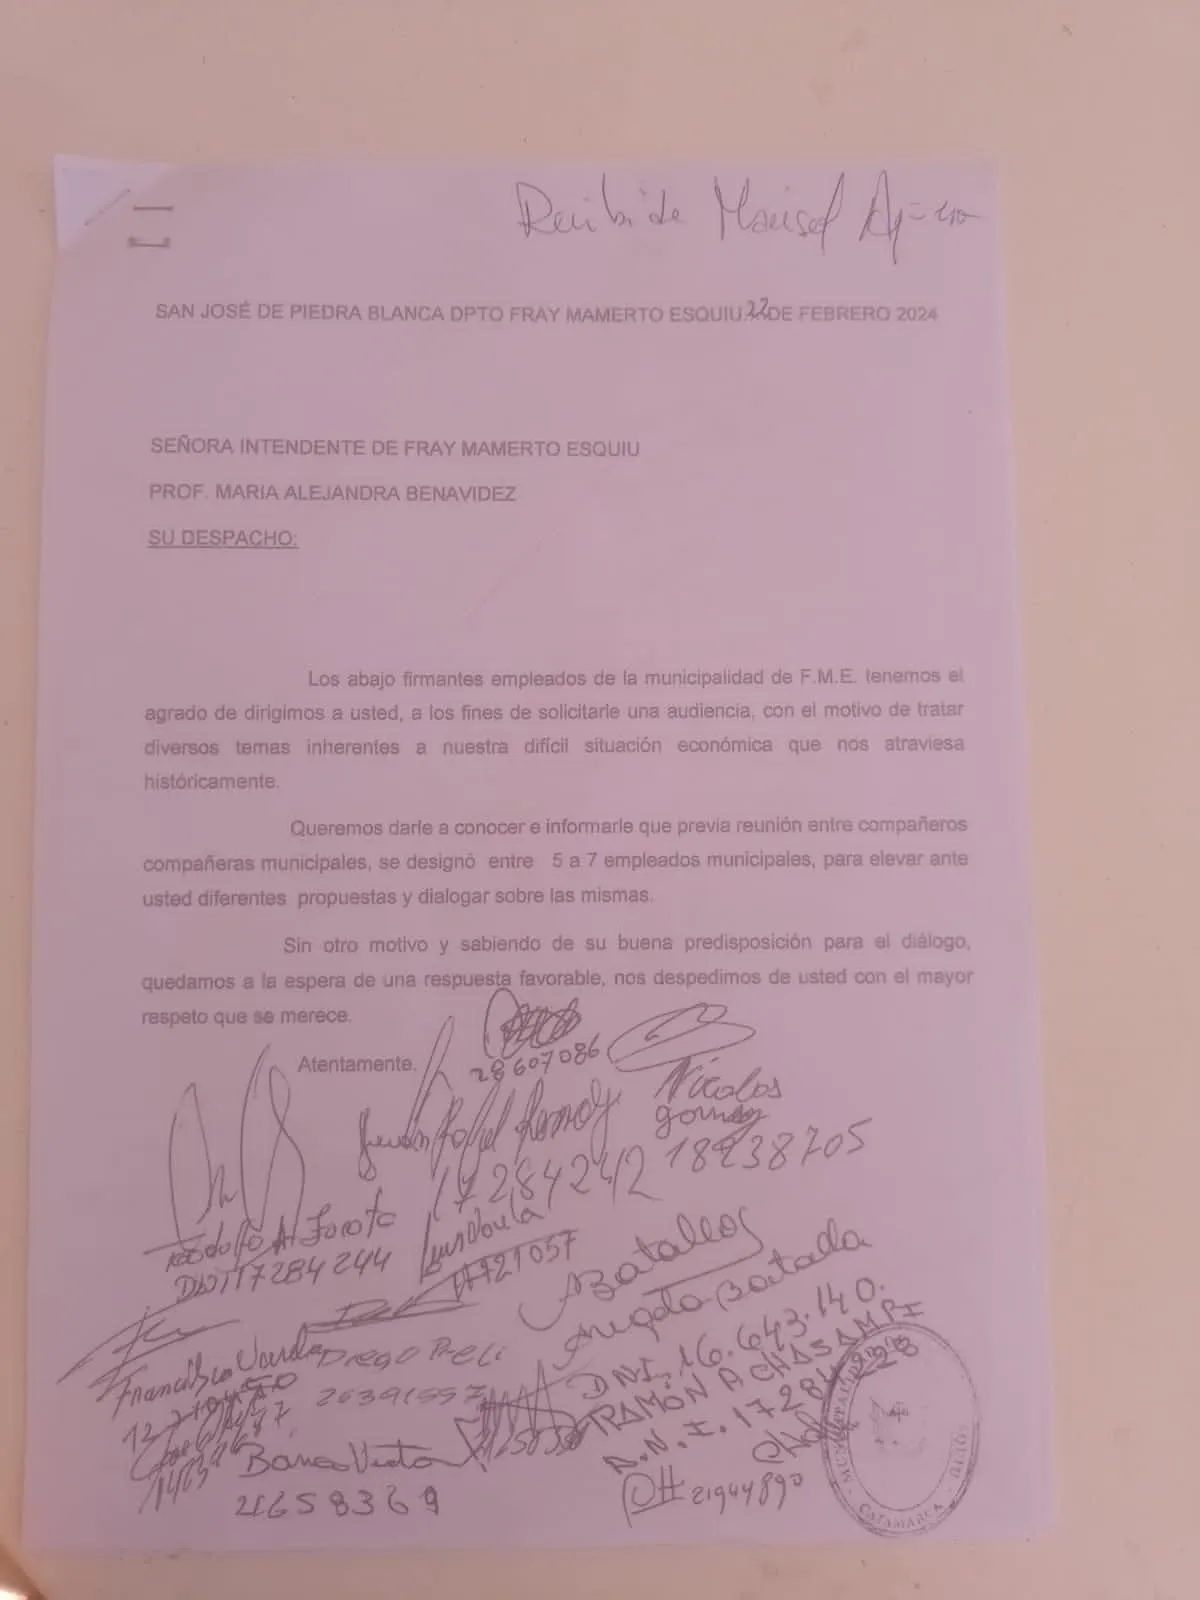 Recibi de Marisol
SAN JOSÉ DE PIEDRA BLANCA DPTO FRAY MAMERTO ESQUIU 22 DE FEBRERO 2024
SEÑORA INTENDENTE DE FRAY MAMERTO ESQUIU
PROF. MARIA ALEJANDRA BENAVIDEZ
SU DESPACHO:
Los abajo firmantes empleados de la municipalidad de F.M.E. tenemos el
agrado de dirigimos a usted, a los fines de solicitarle una audiencia, con el motivo de tratar
diversos temas inherentes a nuestra difícil situación económica que nos atraviesa
históricamente.
Queremos darle a conocer e informarle que previa reunión entre compañeros
compañeras municipales, se designó entre 5 a 7 empleados municipales, para elevar ante
usted diferentes propuestas y dialogar sobre las mismas.
Sin otro motivo y sabiendo de su buena predisposición para el diálogo,
quedamos a la espera de una respuesta favorable, nos despedimos de usted con el mayor
respeto que se merece.
Atentamente.
28607086
Nicolas
18238705
17284242
Rodolfo A.
DNI 17284244
Batallos
Batada
DNI. 16.643.140.
Francisco
Diego
20391557
RAMÓN A CHASAMPI
D.N.I. 17284228
21658369
21944890
CATAMARCA